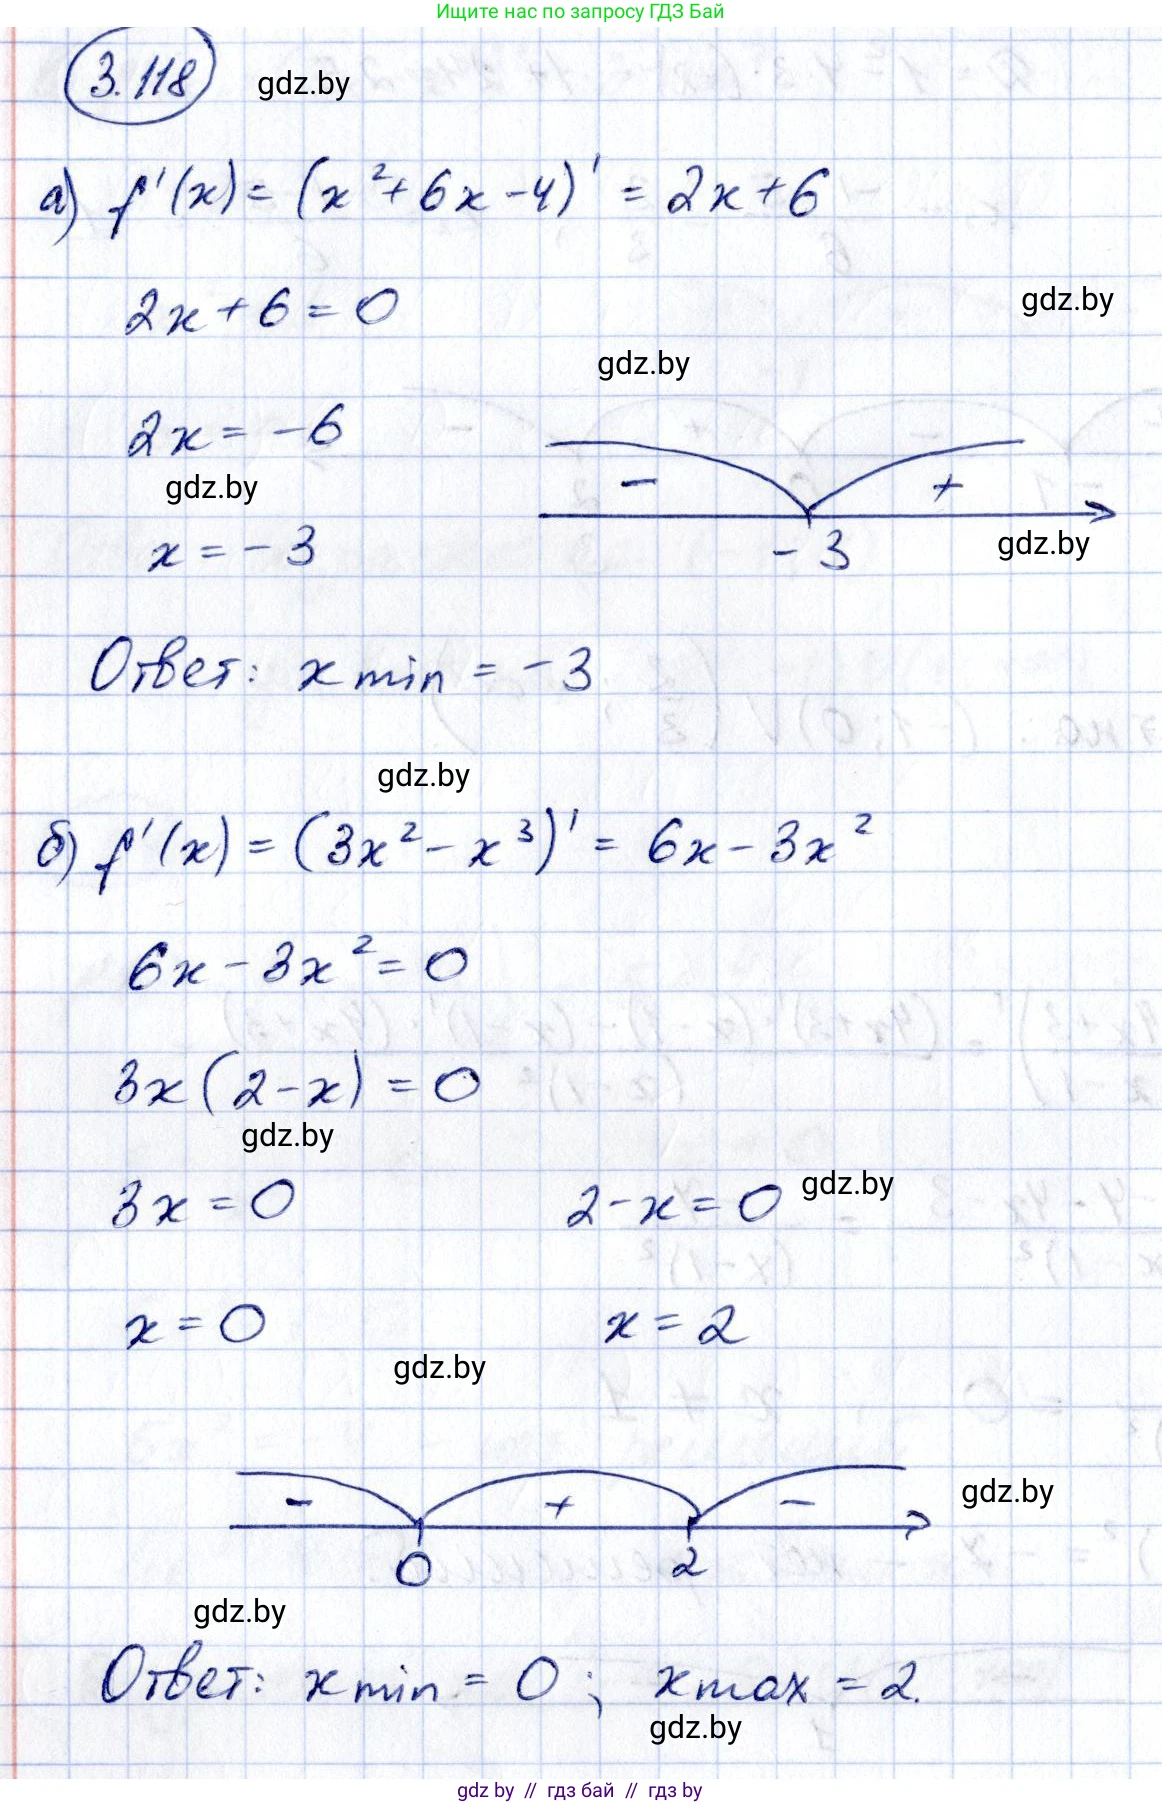 Ищите нас по запросу ГДЗ Бай
3.118 gdz.by
а) f'(x) = (x² + 6x - 4)' = 2x + 6
2x + 6 = 0
gdz.by
gdz.by
2x = -6
gdz.by
- +
x = -3
-3
gdz.by
Ответ: x min = -3
gdz.by
б) f'(x) = (3x² - x³)' = 6x - 3x²
6x - 3x² = 0
3x(2 - x) = 0
gdz.by
3x = 0 2 - x = 0 gdz.by
x = 0 x = 2
gdz.by
- + - gdz.by
0 2
gdz.by
Ответ: x min = 0; x max = 2.
gdz.by
gdz by // гдз бай // гдз by